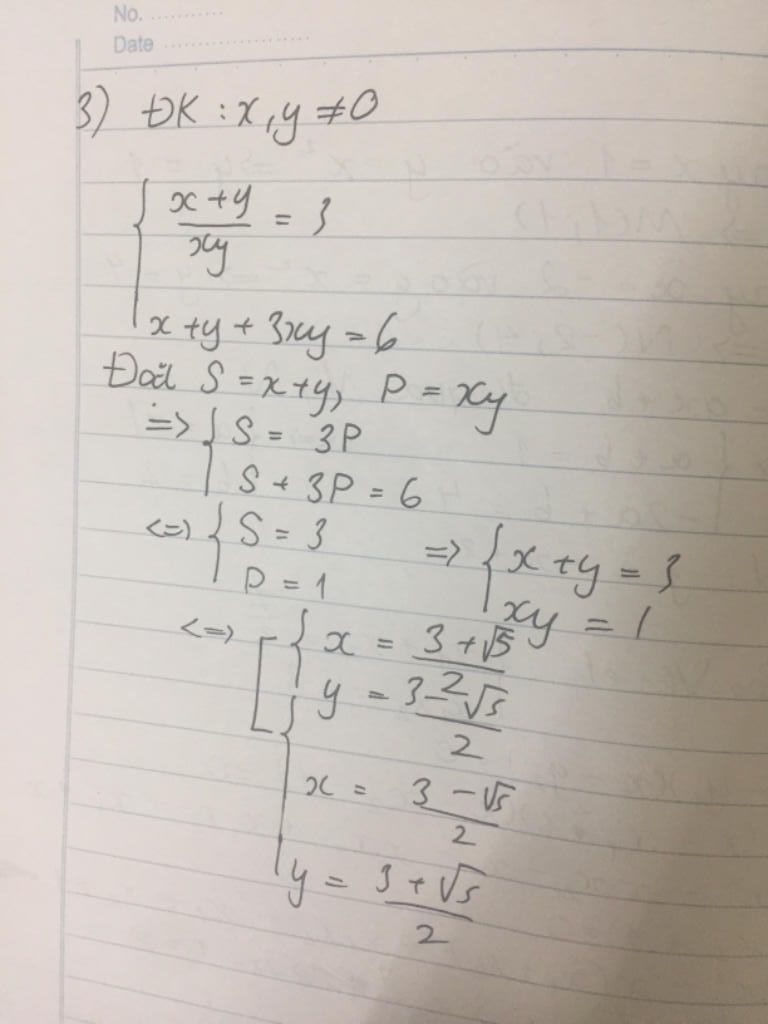 No. ............
Date ........................
3) ĐK : x, y ≠ 0
{ (x + y)/(xy) = 3
x + y + 3xy = 6
Đặt S = x + y, P = xy
=> { S = 3P
S + 3P = 6
<=> { S = 3
P = 1
=> { x + y = 3
xy = 1
<=> [ { x = (3 + √5)/2
y = (3 - √5)/2
{ x = (3 - √5)/2
y = (3 + √5)/2